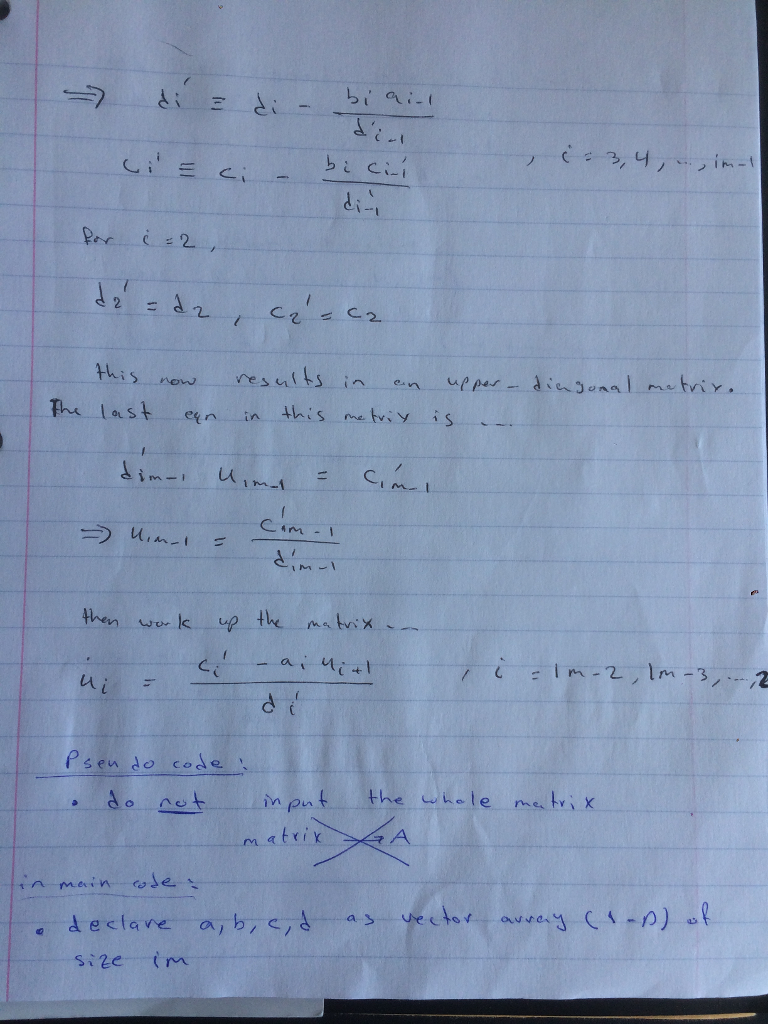 ⇒ di' ≡ di - bi ai-1 / d'i-1
ci' ≡ ci - bi ci-1' / di-1' , i = 3, 4, ..., im-1
for i = 2,
d2' = d2 , c2' = c2
this now results in an upper-diagonal matrix.
The last eqn in this matrix is ...
d'im-1 uim-1 = c'im-1
⇒ uim-1 = c'im-1 / d'im-1
then work up the matrix ...
ui = ci' - ai ui+1 / di' , i = im-2, im-3, ..., 2
Pseudo code :
• do not input the whole matrix
matrix → A
in main code :
• declare a, b, c, d as vector array (1-D) of
size im